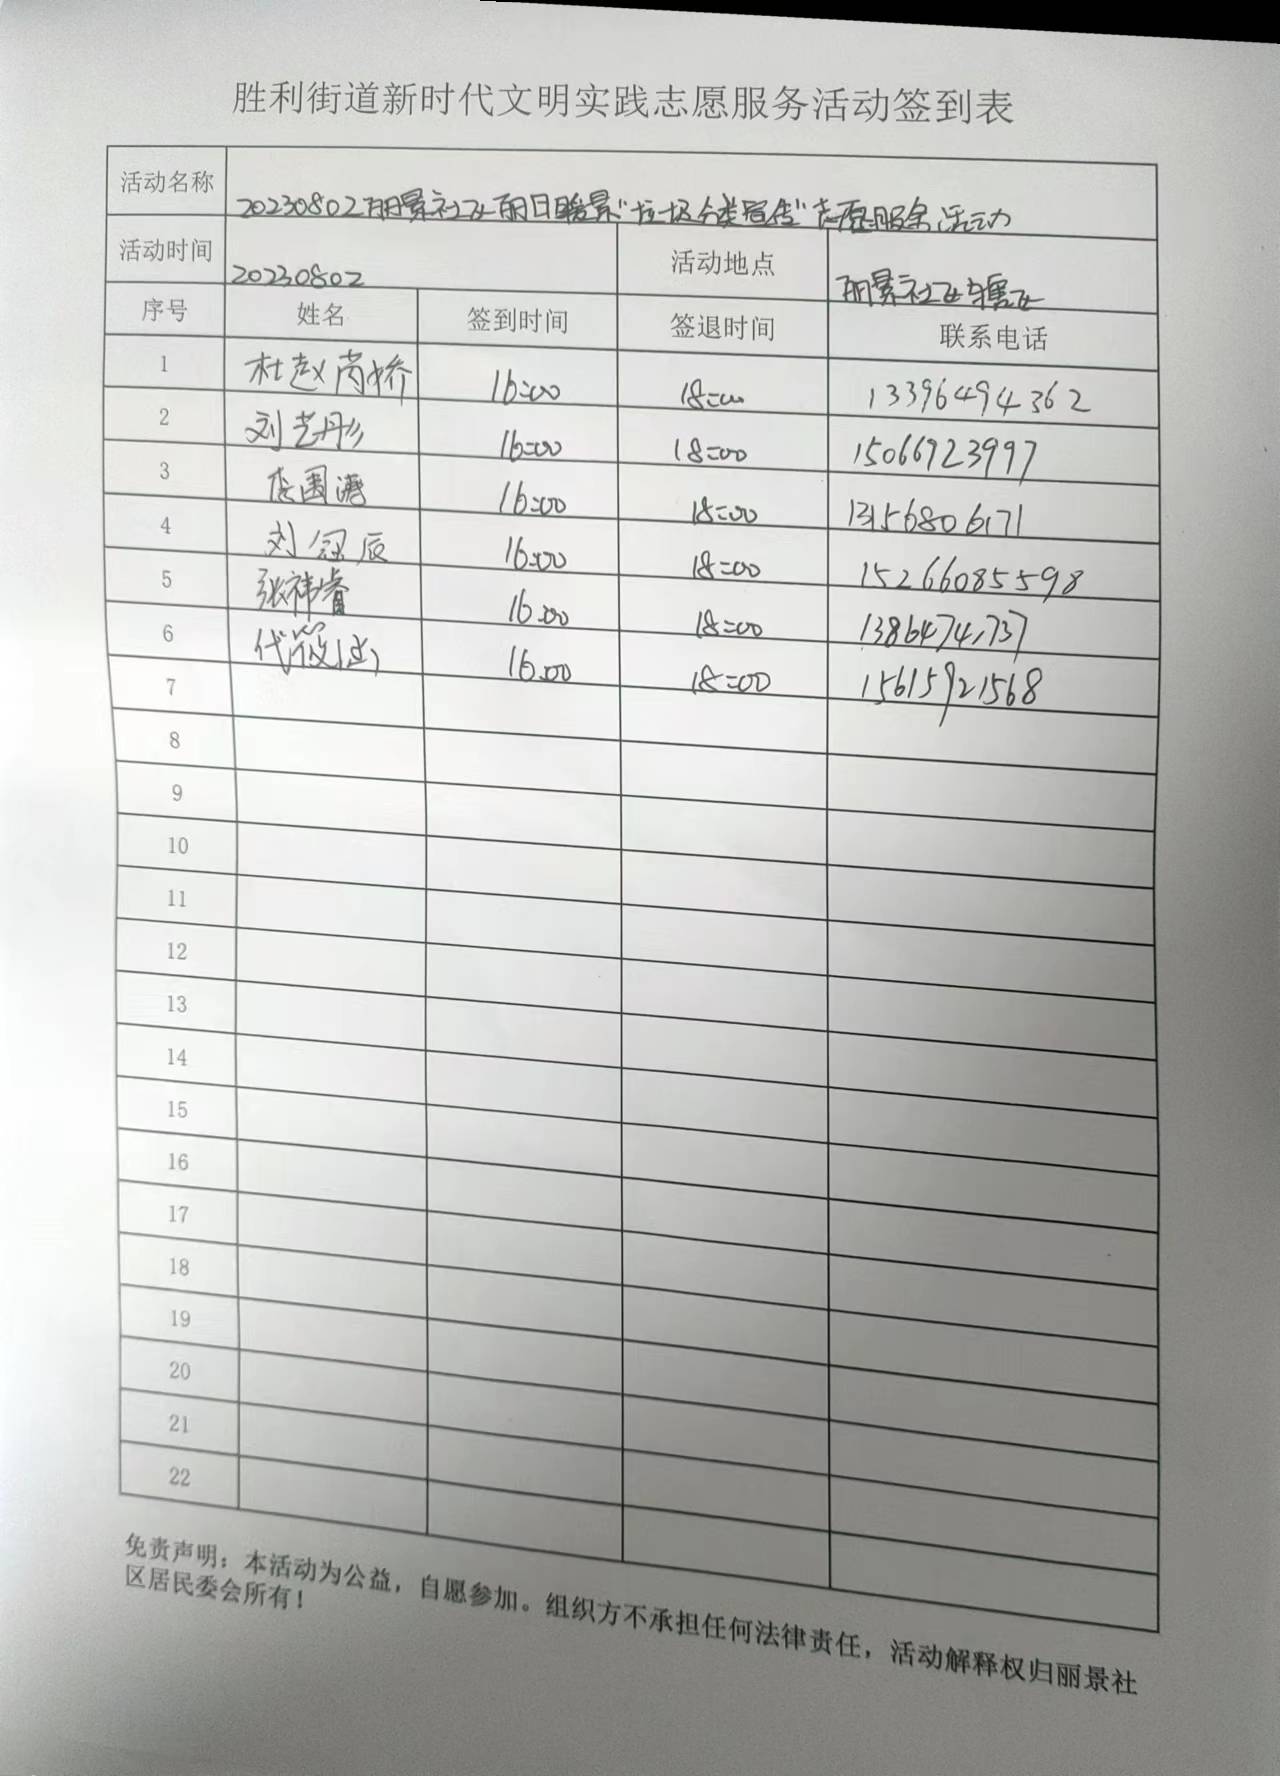 胜利街道新时代文明实践志愿服务活动签到表
活动名称 20230802丽景社区丽日暖景“垃圾分类宣传”志愿服务活动
活动时间 20230802 活动地点 丽景社区辖区
序号 姓名 签到时间 签退时间 联系电话
1 杜赵芮娇 16:00 18:00 13396494362
2 刘艺彤 16:00 18:00 15066923997
3 16:00 18:00 13156806171
4 刘冠辰 16:00 18:00 15266085598
5 张祎睿 16:00 18:00
6 代筱 16:00 18:00 15615921568
7
8
9
10
11
12
13
14
15
16
17
18
19
20
21
22
免责声明：本活动为公益，自愿参加。组织方不承担任何法律责任，活动解释权归丽景社
区居民委会所有！